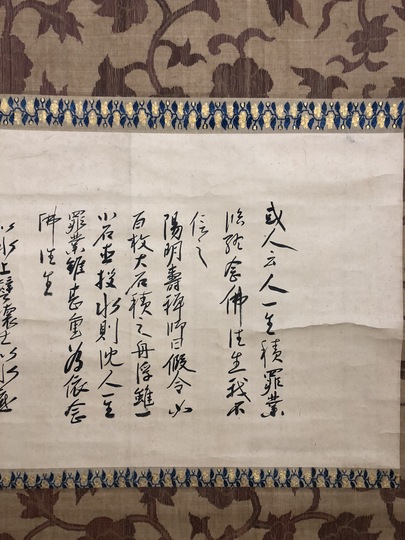 或人云人一生積罪業
臨終念佛往生我不
信之
陽明壽禅師曰假令
百枚大石積之舟浮雖一
小石直投水則沈人一生
罪業雖甚重為依念
佛往生
水上譬